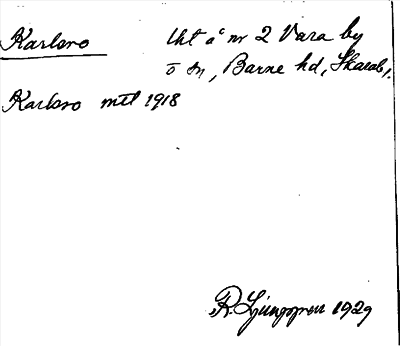 Karlsro
Uht å nr 2 Vara by
o sn, Barne hd, Skarab l.
Karlsro mtl 1918
R. Ljunggren 1929